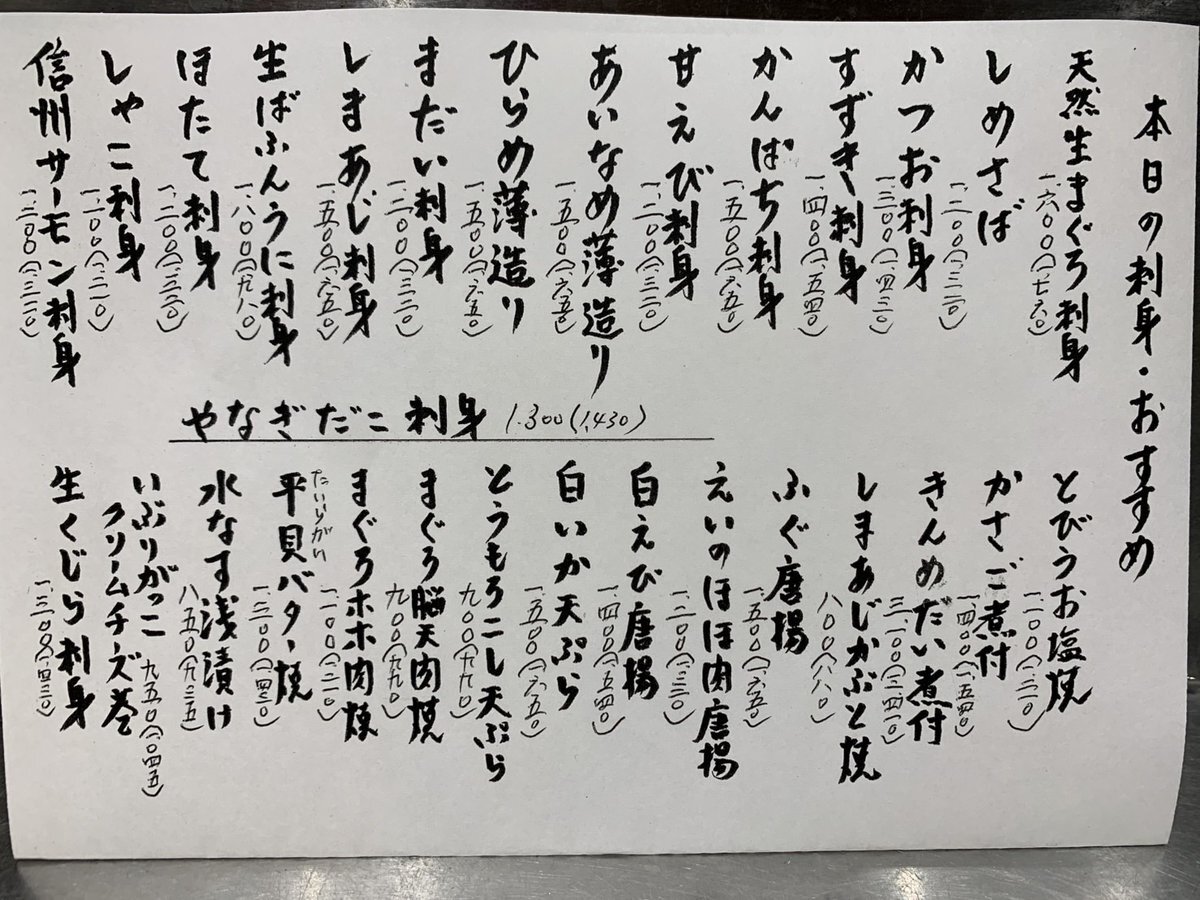 本日の刺身・おすすめ
天然生まぐろ刺身
一、六〇〇(一、七六〇)
しめさば
一、二〇〇(一、三二〇)
かつお刺身
一、三〇〇(一、四三〇)
すずき刺身
一、四〇〇(一、五四〇)
かんぱち刺身
一、五〇〇(一、六五〇)
甘えび刺身
一、二〇〇(一、三二〇)
あいなめ薄造り
一、五〇〇(一、六五〇)
ひらめ薄造り
一、五〇〇(一、六五〇)
まだい刺身
一、二〇〇(一、三二〇)
しまあじ刺身
一、五〇〇(一、六五〇)
生ばふんうに刺身
一、八〇〇(一、九八〇)
ほたて刺身
一、二〇〇(一、三二〇)
しゃこ刺身
一、一〇〇(一、二一〇)
信州サーモン刺身
一、二〇〇(一、三二〇)
やなぎだこ刺身 1.300(1,430)
とびうお塩焼
一、一〇〇(一、二一〇)
かさご煮付
一、四〇〇(一、五四〇)
きんめだい煮付
三、一〇〇(三、四一〇)
しまあじかぶと焼
八〇〇(八八〇)
ふぐ唐揚
一、五〇〇(一、六五〇)
えいのほほ肉唐揚
一、二〇〇(一、三二〇)
白えび唐揚
一、四〇〇(一、五四〇)
白いか天ぷら
一、五〇〇(一、六五〇)
とうもろこし天ぷら
九〇〇(九九〇)
まぐろ脳天肉焼
九〇〇(九九〇)
まぐろホホ肉焼
一、一〇〇(一、二一〇)
たいらがい
平貝バター焼
一、三〇〇(一、四三〇)
水なす浅漬け
八五〇(九三五)
いぶりがっこ
九五〇(一、〇四五)
クリームチーズ巻
生くじら刺身
一、三〇〇(一、四三〇)